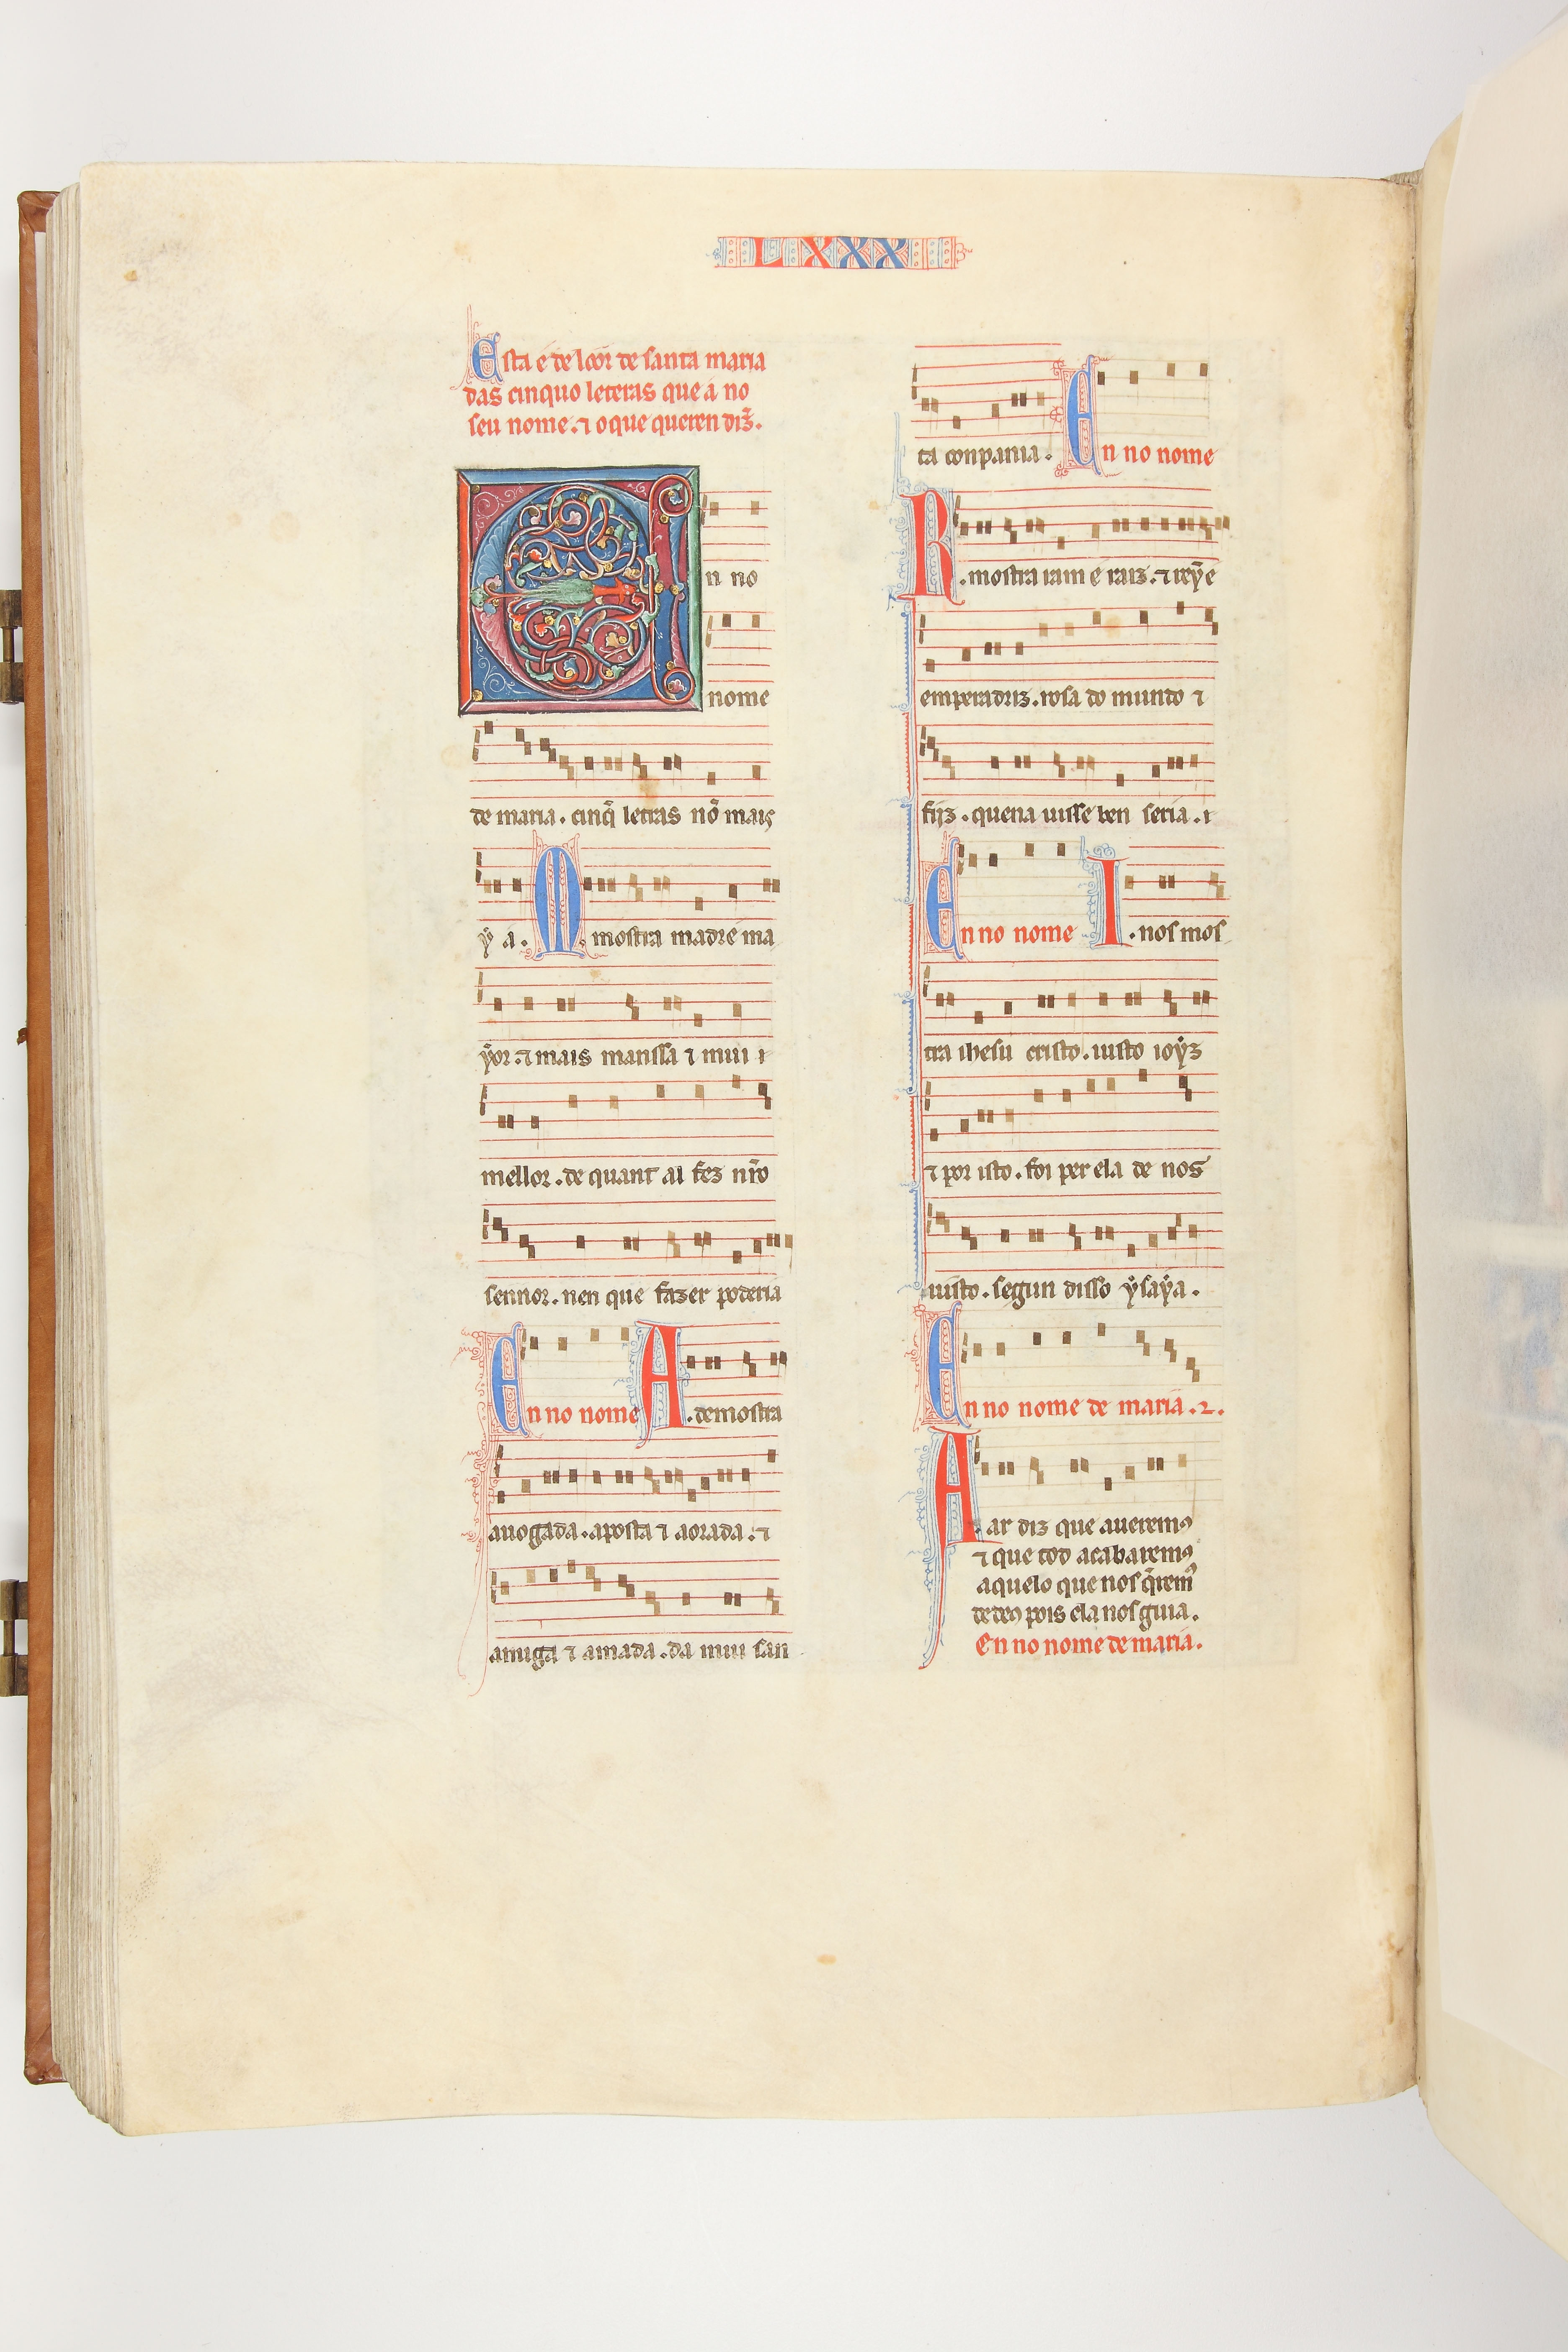 LXXX
Esta é de loor de santa maria
das cinquo leteras que á no
seu nome. ⁊ o que queren diz̃.
En no
nome
de maria. cinq̃ letras nõ mais
ẏ a. M. mostra madré ma
ẏor. ⁊ mais manssa ⁊ mui
mellor. de quant al fez nr̃o
sennor. nen que fazer poderia
En no nome A. demostra
auogada. aposta ⁊ aorada. ⁊
amiga ⁊ amada. da mui san
ta conpania. En no nome
R. mostra ram é raiz. ⁊ reẏ é
emperadriz. rosa do mundo ⁊
fijz. quena uisse ben seria.
En no nome I. nos mos
tra ihesu cristo. iusto ioẏz
⁊ por isto. foi per ela de nos
uisto. segun disso ẏsaẏa.
En no nome de maria. 2.
A. ar diz que aueremꝯ
⁊ que tod acabaremꝯ
aquelo que nos q̃remꝯ
de deꝯ pois ela nos guia.
En no nome de maria.